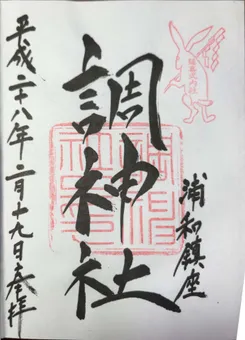 浦和鎮座
調神社
平成二十八年二月十九日参拝